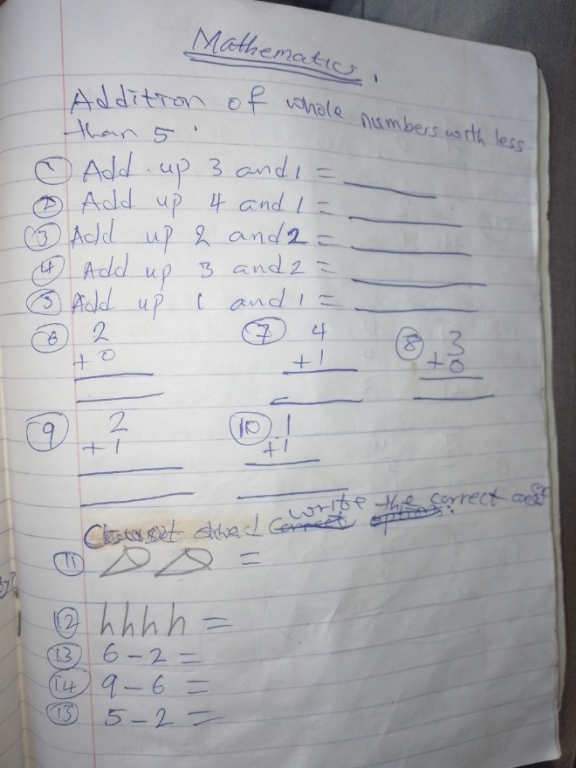 Mathematics.
Addition of whole numbers with less
than 5.
① Add up 3 and 1 = ____
② Add up 4 and 1 = ____
③ Add up 2 and 2 = ____
④ Add up 3 and 2 = ____
⑤ Add up 1 and 1 = ____
⑥ 2 ⑦ 4 ⑧ 3
+0 +1 +0
⑨ 2 ⑩ 1
+1 +1
write the correct
⑪ =
⑫ hhhh =
⑬ 6 - 2 =
⑭ 9 - 6 =
⑮ 5 - 2 =